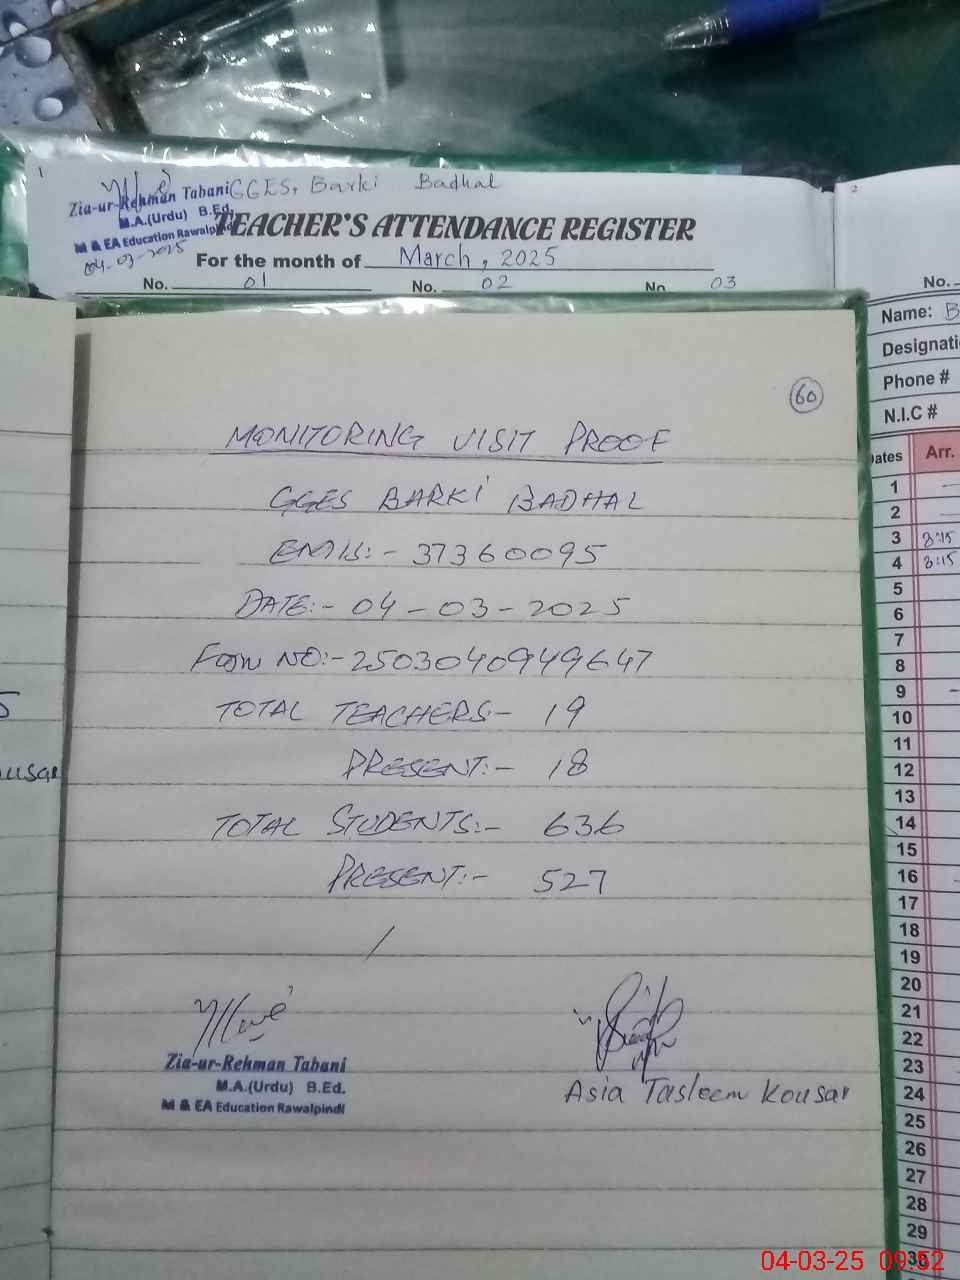 1
GGES, Barki Badhal
Zia-ur-Rehman Tabani
M.A.(Urdu) B.Ed.
M & EA Education Rawalpindi
04-03-2025
TEACHER'S ATTENDANCE REGISTER
For the month of March, 2025
No. 01 No. 02 No. 03
2
No.
Name: B
Designati
Phone #
N.I.C #
Dates Arr.
1
2
3 8:15
4 8:15
5
6
7
8
9
10
11
12
13
14
15
16
17
18
19
20
21
22
23
24
25
26
27
28
29
30
60
MONITORING VISIT PROOF
GGES BARKI BADHAL
EMIS:- 37360095
DATE:- 04-03-2025
Form NO:- 2503040949647
TOTAL TEACHERS- 19
PRESENT:- 18
TOTAL STUDENTS:- 636
PRESENT:- 527
Zia-ur-Rehman Tabani
M.A.(Urdu) B.Ed.
M & EA Education Rawalpindi
Asia Tasleem Kousar
5
ousar
04-03-25 09:52